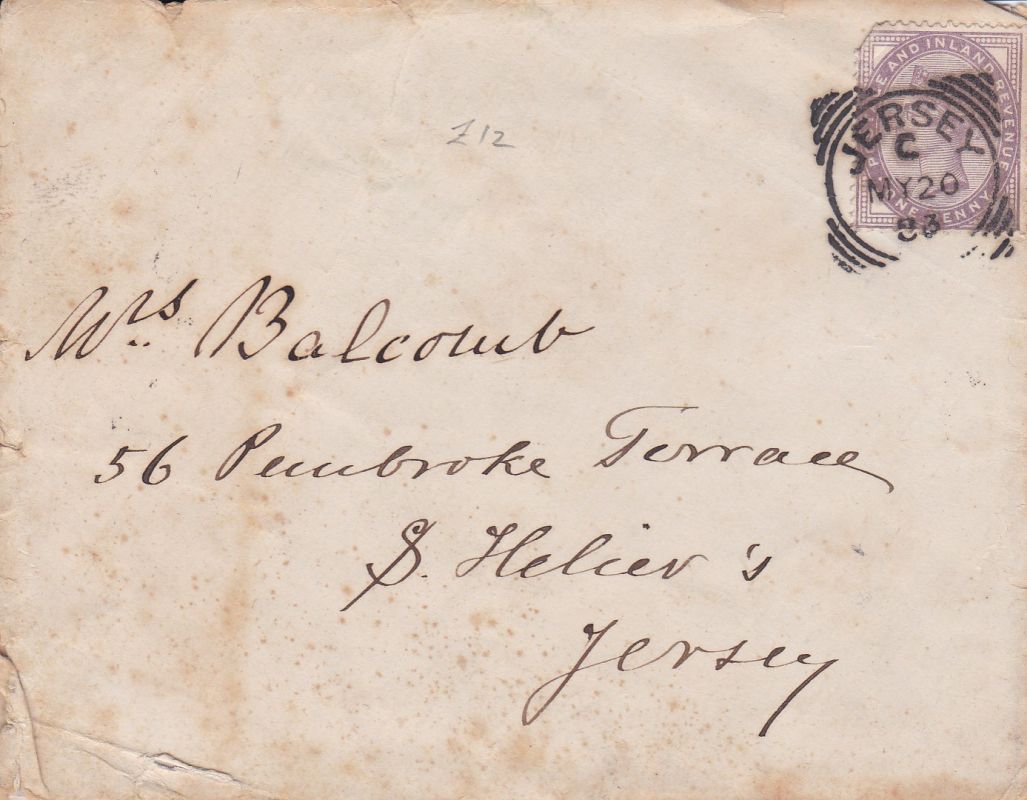 POSTAGE AND INLAND REVENUE
ONE PENNY
JERSEY
C
MY 20
83
£12
Mrs. Balcomb
56 Pembroke Terrace
S. Helier's
Jersey